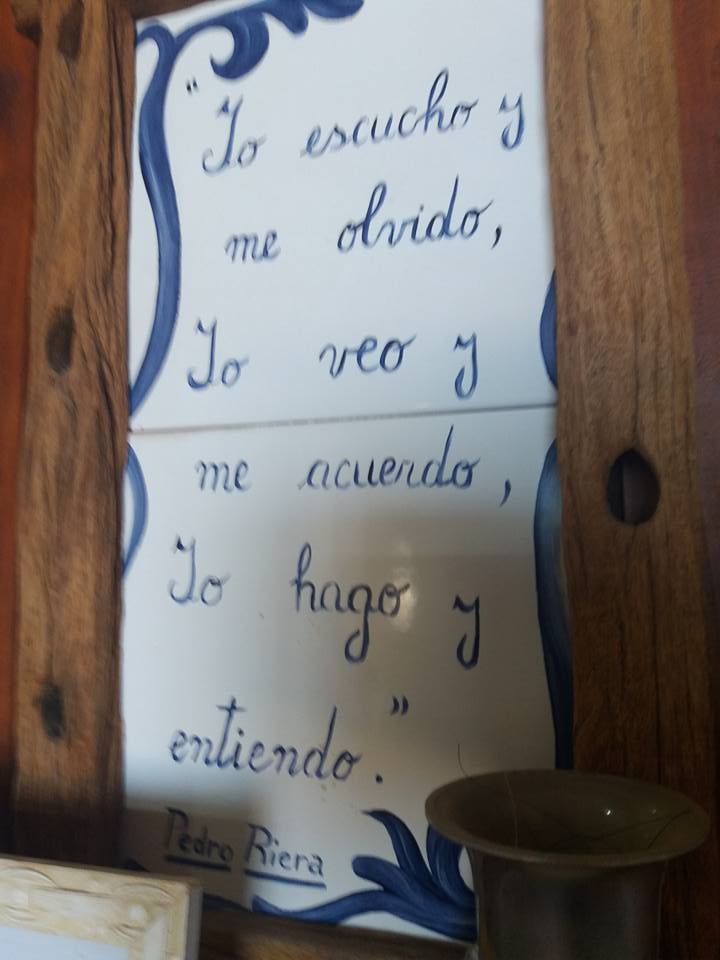 "Yo escucho y
me olvido,
Yo veo y
me acuerdo,
Yo hago y
entiendo."
Pedro Riera